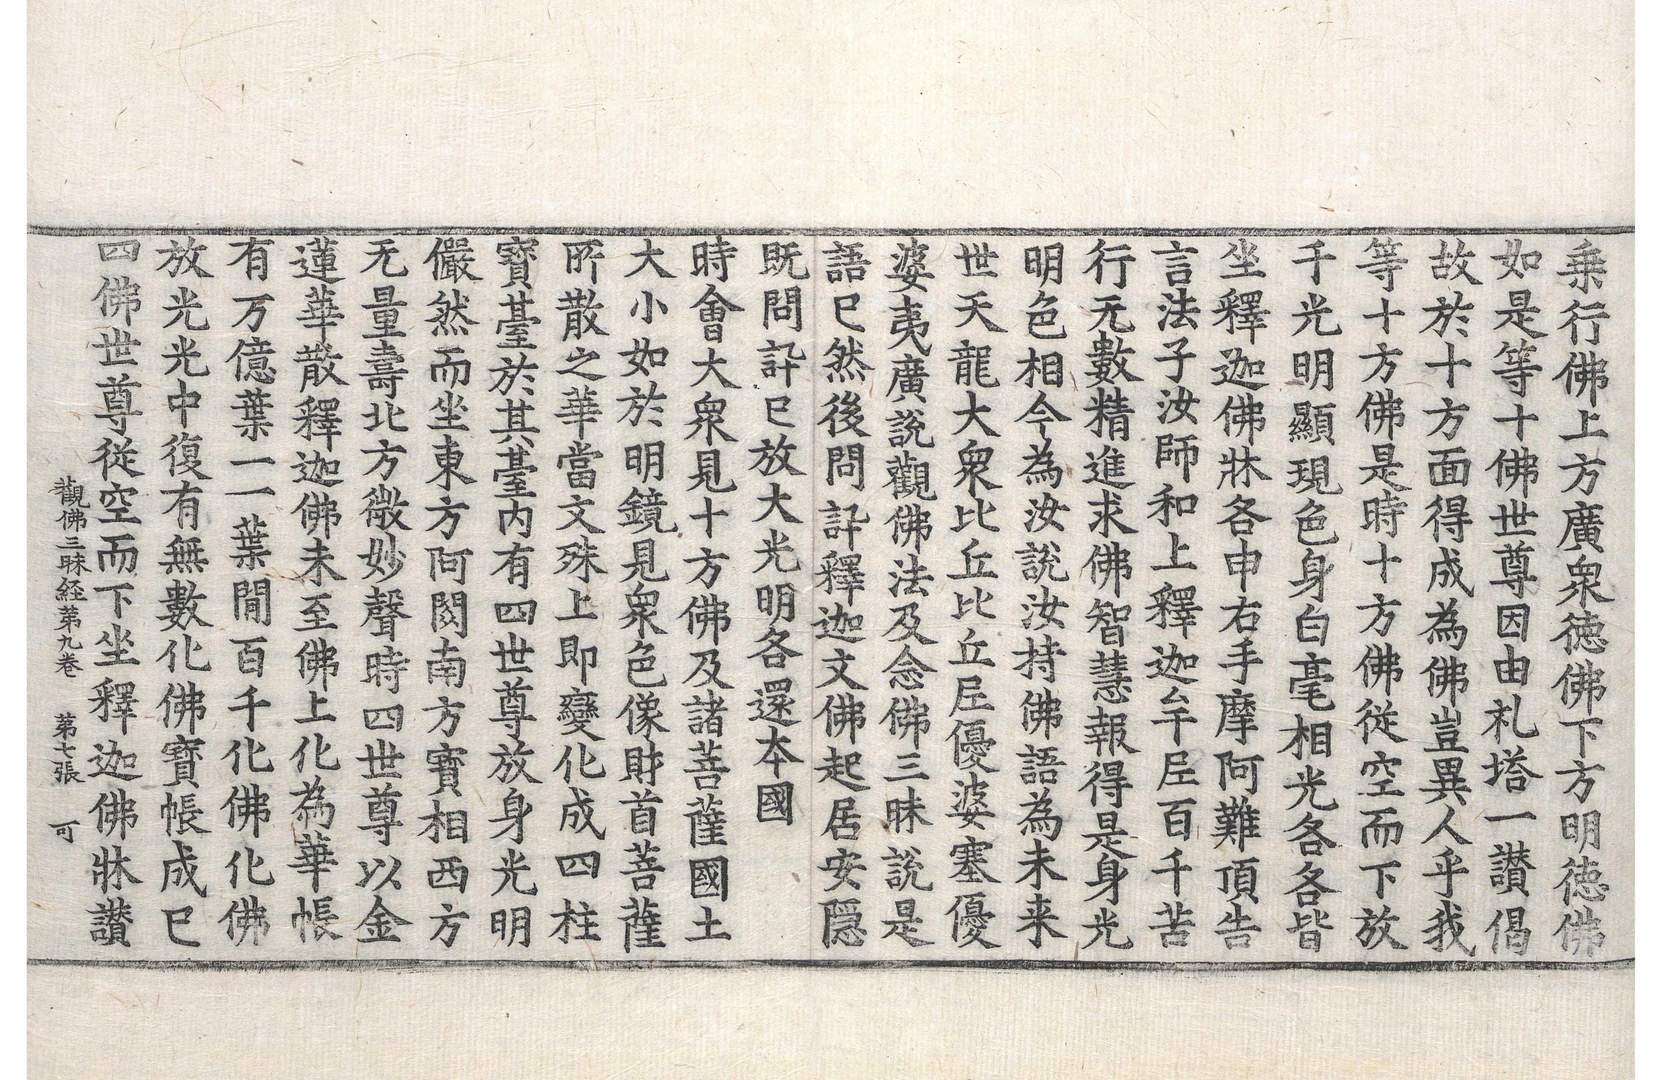 乗行佛上方廣衆徳佛下方明徳佛
如是等十佛世尊因由礼塔一讃偈
故於十方面得成為佛豈異人乎我
等十方佛是時十方佛従空而下放
千光明顯現色身白毫相光各各皆
坐釋迦佛牀各申右手摩阿難頂告
言法子汝師和上釋迦牟尼百千苦
行无數精進求佛智慧報得是身光
明色相今為汝說汝持佛語為未来
世天龍大衆比丘比丘尼優婆塞優
婆夷廣說觀佛法及念佛三昧說是
語已然後問訊釋迦文佛起居安隠
既問訊已放大光明各還本國
時會大衆見十方佛及諸菩薩國土
大小如於明鏡見衆色像財首菩薩
所散之華當文殊上即變化成四柱
寶臺於其臺内有四世尊放身光明
儼然而坐東方阿閦南方寳相西方
无量壽北方微妙聲時四世尊以金
蓮華散釋迦佛未至佛上化為華帳
有万億葉一一葉閒百千化佛化佛
放光光中復有無數化佛寳帳成已
四佛世尊従空而下坐釋迦佛牀讃
觀佛三昧経第九卷　第七張　可